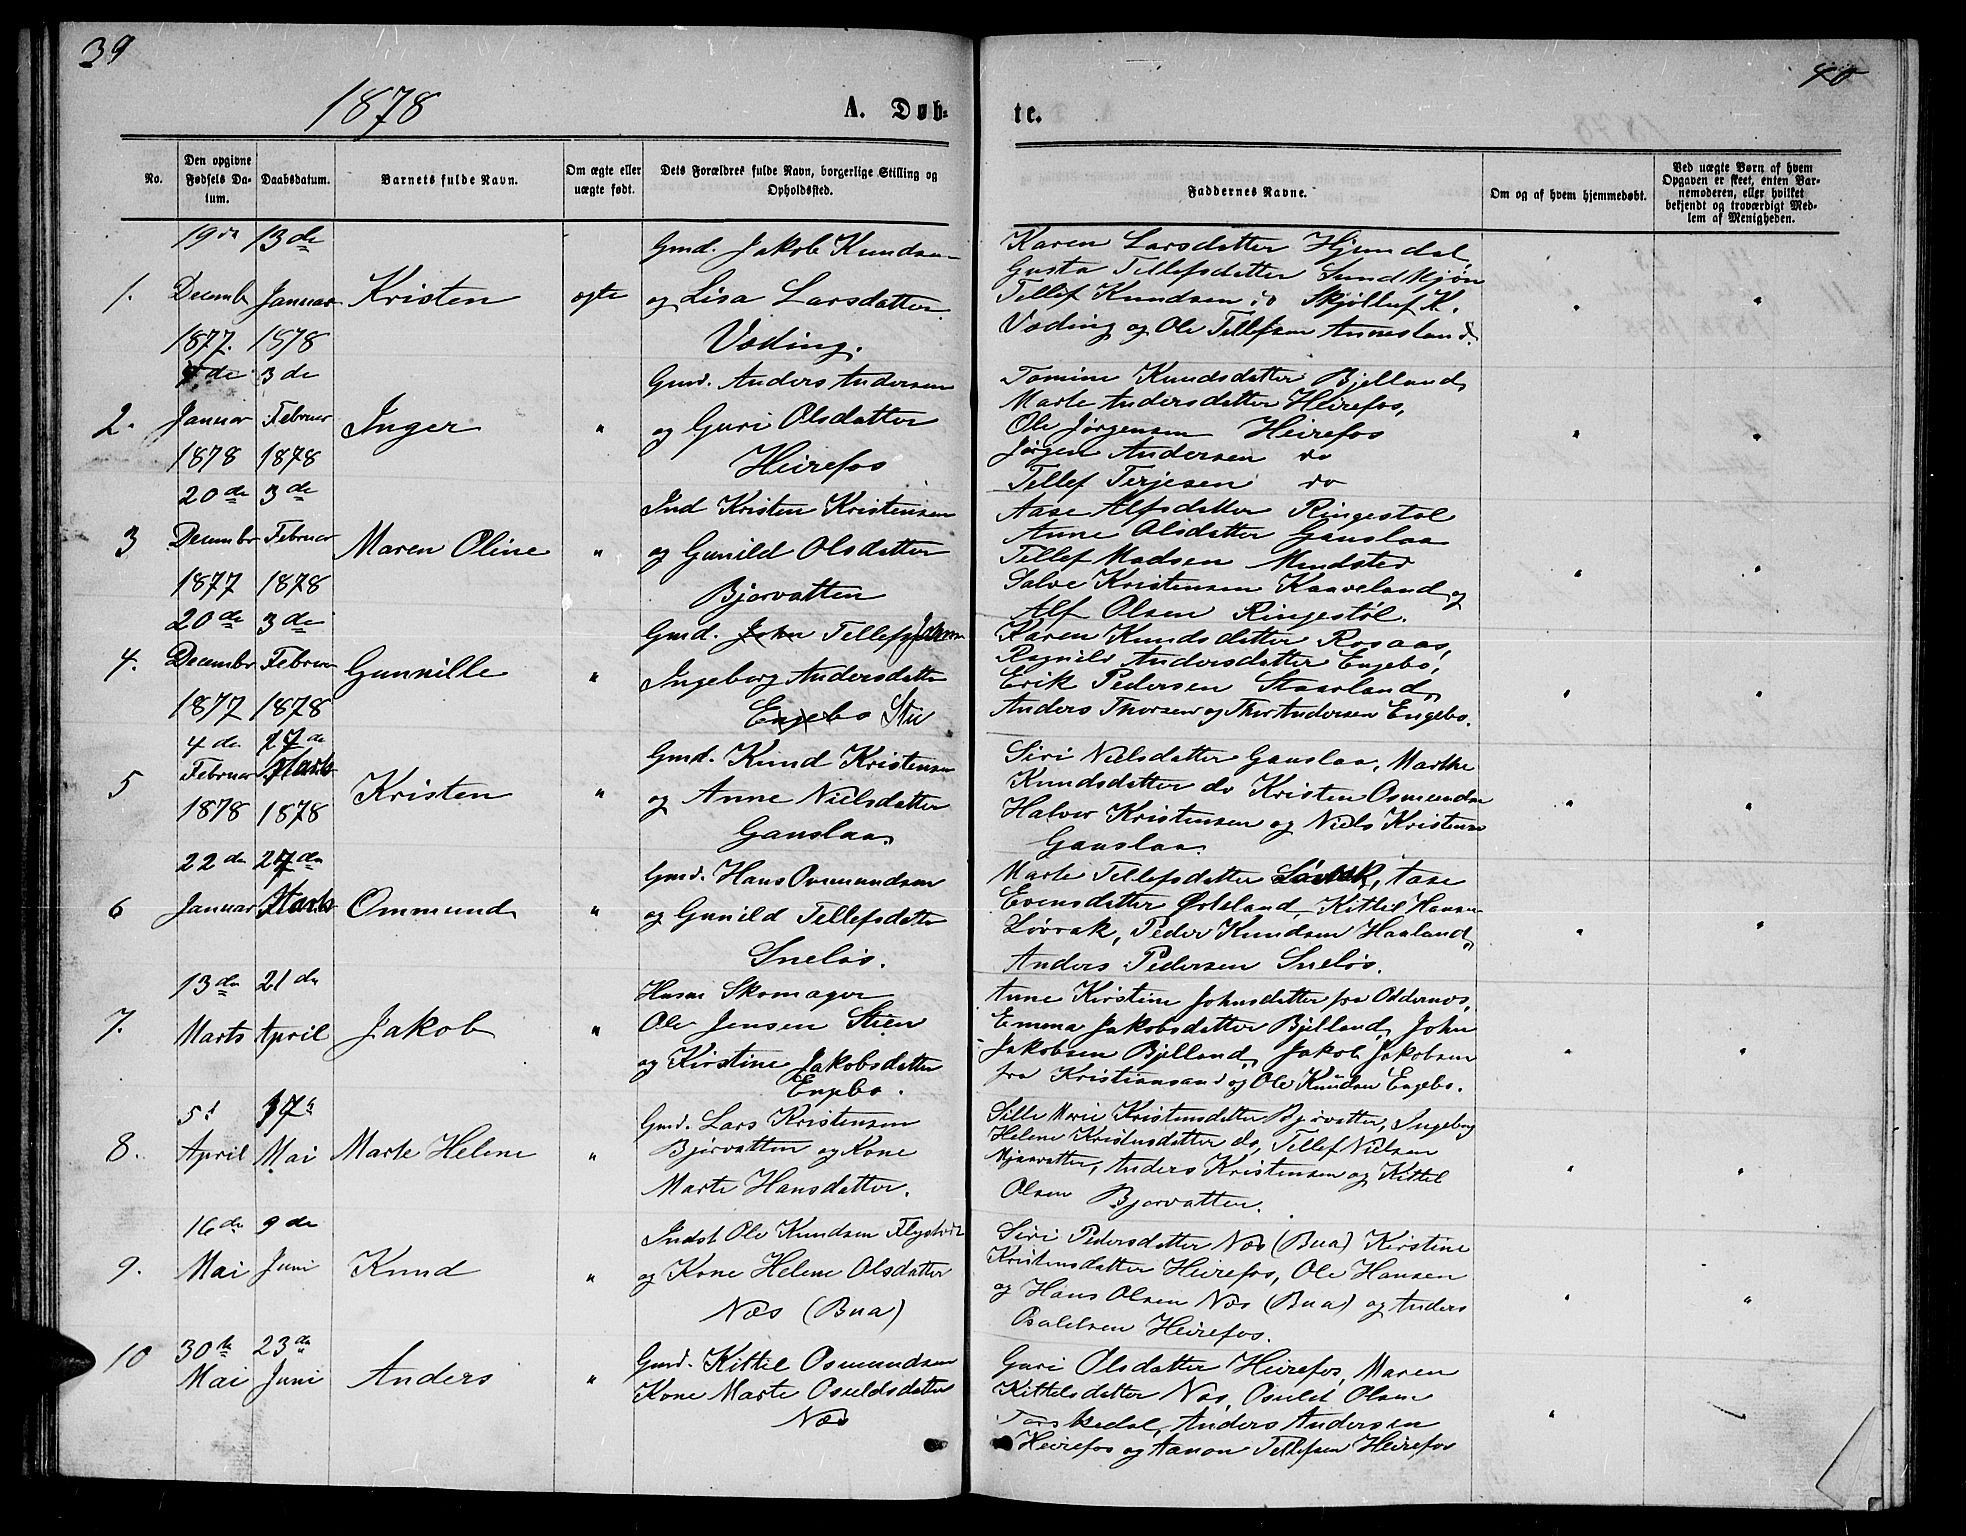 39
40
1878
A. Døb-
te.
No.
Den opgivne Fødsels Da-tum.
Daabsdatum.
Barnets fulde Navn.
Om ægte eller uægte født.
Dets Forældres fulde Navn, borgerlige Stilling og Opholdssted.
Faddernes Navne.
Om og af hvem hjemmedøbt.
Ved uægte Børn af hvem Opgaven er skeet, enten Bar-nemoderen, eller hvilket bekjendt og troværdigt Med-lem af Menigheden.
1. 19de Decembr 1877. 13de Januar 1878 Kristen ægte
Gmd. Jakob Knudsen
og Lisa Larsdatter
Væding.
Karen Larsdatter Hjemdal,
Gusta Tellefsdatter
Tellef Knudsen
Væding og Ole Tellefsen Annesland.
2. Januar 1878 3de Februar 1878 Inger "
Gmd. Anders Andersen
og Guri Olsdatter
Heirefos
Tomine Knudsdatter Bjelland,
Marte Andersdatter Heirefos,
Ole Jørgensen Heirefos
Jørgen Andersen do
Tellef Terjesen do
3 20de Decembr 1877 3de Februar 1878 Maren Oline "
Ind Kristen Kristensen
og Gunild Olsdatter
Bjorvatten
Aase Alfsdatter Ringestøl
Anne Olsdatter Ganslaa
Tellef Madsen
Salve Kristensen Kaaveland og
Alf Olsen Ringestøl.
4. 20de Decembr 1877 3de Februar 1878 Gunnille "
Gmd. John Tellef Johnsen
Ingeborg Andersdatter
Engebo
Karen Knudsdatter Rosaas,
Ragnild Andersdatter Engebo,
Erik Pedersen
Anders Thorsen og Thor Andersen Engebo.
5 4de Februar 1878 17de Marts 1878 Kristen "
Gmd. Knud Kristensen
og Anne Nielsdatter
Ganslaa.
Siri Nielsdatter Ganslaa, Marthe
Knudsdatter do Kristen Osmundsen
Halvor Kristensen og Niels Kristensen
Ganslaa.
6 22de Januar Marts Ommund "
Gmd. Hans Ommundsen
og Gunild Tellefsdatter
Sneløs.
Marte Tellefsdatter Løvrak, Aase
Evensdatter Kittil Hansen
Løvrak, Peder Knudsen Haaland,
Anders Pedersen Sneløs.
7. 13de Marts 21de April Jakob "
Husm Skomager
Ole Jensen Stien
og Kirstine Jakobsdatter
Engebo.
Anne Kirstine Johnsdatter fra Oddernes,
Emma Jakobsdatter Bjelland, John
Jakobsen Bjelland, Jakob Jakobsen
fra Kristiansand og Ole Knudsen Engebo.
8. April Mai Marte Helene "
Gmd. Lars Kristensen
Bjorvatten og Kone
Marte Hansdatter.
Sille Marie Kristensdatter Bjorvatten, Ingeborg
Helene Kristensdatter do, Tellef Nielsen
Mjaavatten, Anders Kristensen og Kittil
Olsen Bjorvatten.
9. 16de Mai 9de Juni Knud "
Indst Ole Knudsen
og Kone Helene Olsdatter
Næs (Bua)
Siri Pedersdatter Næs (Bua) Kirstine
Kristensdatter Heirefos, Ole Hansen
og Hans Olsen Næs (Bua) og Anders
Heirefos.
10 30te Mai 23de Juni Anders "
Gmd. Kittil Osmundsen
Kone Marte Osuldsdatter
Næs
Guri Olsdatter Heirefos, Maren
Kittelsdatter Næs, Osuld Olsen
Anders Andersen
Heirefos og Aanon Tellefsen Heirefos